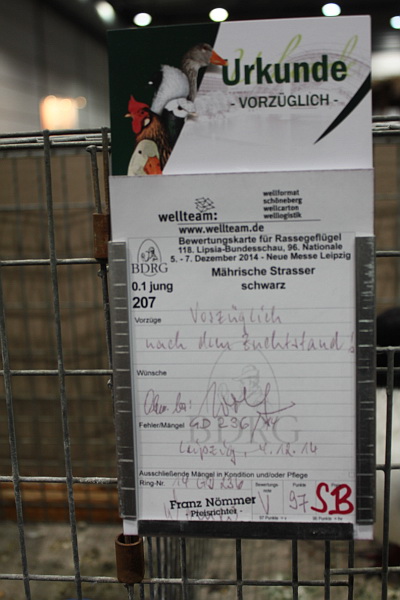 Urkunde
- VORZÜGLICH -
wellteam:
wellformat
schöneberg
wellcarton
welllogistik
www.wellteam.de
BDRG
Bewertungskarte für Rassegeflügel
118. Lipsia-Bundesschau, 96. Nationale
5. - 7. Dezember 2014 - Neue Messe Leipzig
0.1 jung
Mährische Strasser
207
schwarz
Vorzüge
Vorzüglich
nach dem Zuchtstand!
Wünsche
BDRG
Fehler/Mängel
GD 236
Leipzig, 4.12.14
Ausschließende Mängel in Kondition und/oder Pflege
Ring-Nr.
14 GD 236
Punkte
V
97
SB
Franz Nömmer
- Preisrichter -